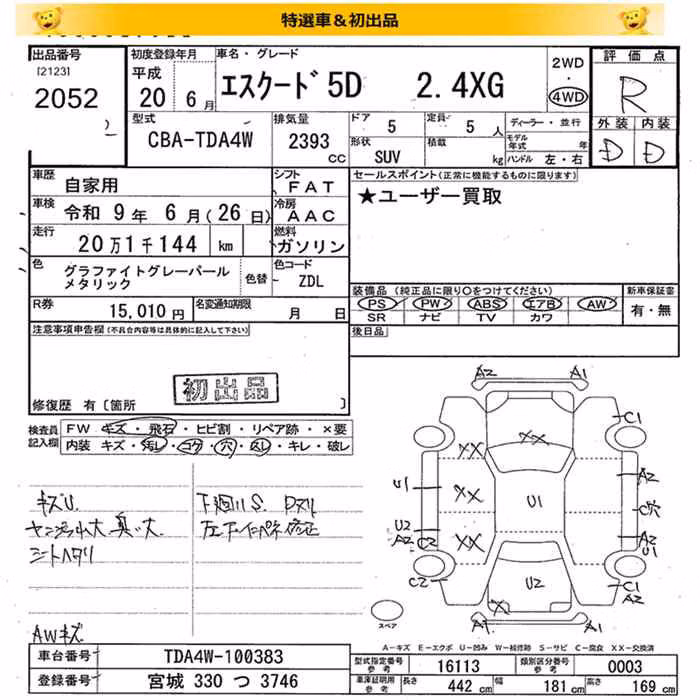 特選車&初出品
出品番号
[2123]
2052
初度登録年月
平成
20 年 6 月
車名・グレード
エスクード 5D 2.4XG
2WD
・
4WD
評価点
R
外装 内装
D D
型式
CBA-TDA4W
排気量
2393
CC
ドア
5
定員
5 人
形状
SUV
積載
kg
ディーラー・並行
モデル年式 年
ハンドル 左・右
車歴
自家用
シフト
FAT
セールスポイント(正常に機能するものに限ります)
★ユーザー買取
車検
令和 9 年 6 月(26 日)
冷房
AAC
走行
20万1千144 km
燃料
ガソリン
色
グラファイトグレーパール
メタリック
色替
色コード
ZDL
装備品(純正品に限り○をつけてください)
PS PW ABS エアB AW
SR ナビ TV カワ
新車保証書
有・無
R券
15,010 円
名変通知期限
月 日
後日品
注意事項申告欄(不具合内容等は具体的に記入して下さい)
初出品
修復歴 有〔箇所 〕
検査員
記入欄
FW キズ・飛石・ヒビ割・リペア跡・×要
内装 キズ・汚レ・コゲ・穴・スレ・キレ・破レ
キズU
シートヘタリ
AWキズ
下廻りS
A2 A1
C1
XX
XX
U1
A2
XX
U1
C穴
U2
A2 C2
XX
A2
U1
C2
U2
C1
A2
X
A2 A1
スペア
A-キズ E-エクボ U-凹み W-補修跡 S-サビ C-腐食 XX-交換済
車台番号
TDA4W-100383
型式指定番号
参考
16113
類別区分番号
参考
0003
登録番号
宮城 330 つ 3746
車庫証明用
参考
長さ 442 cm
幅 181 cm
高さ 169 cm